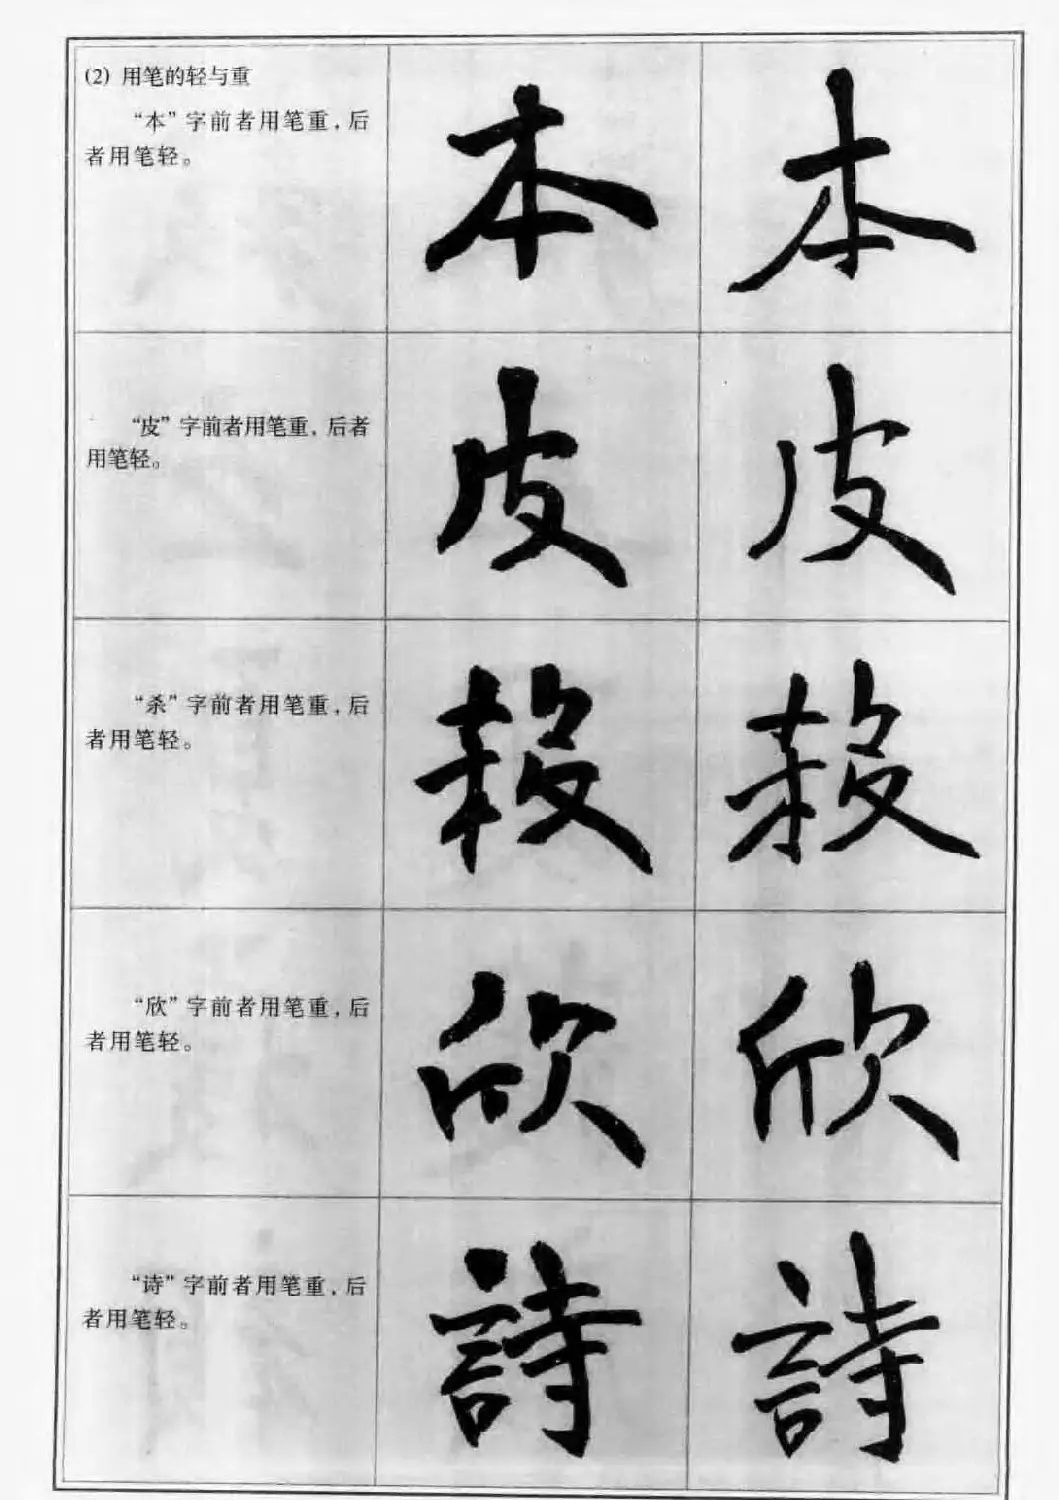 (2) 用笔的轻与重
“本”字前者用笔重，后
者用笔轻。
本 本
“皮”字前者用笔重，后者
用笔轻。
皮 皮
“杀”字前者用笔重，后
者用笔轻。
殺 殺
“欣”字前者用笔重，后
者用笔轻。
欣 欣
“诗”字前者用笔重，后
者用笔轻。
詩 詩